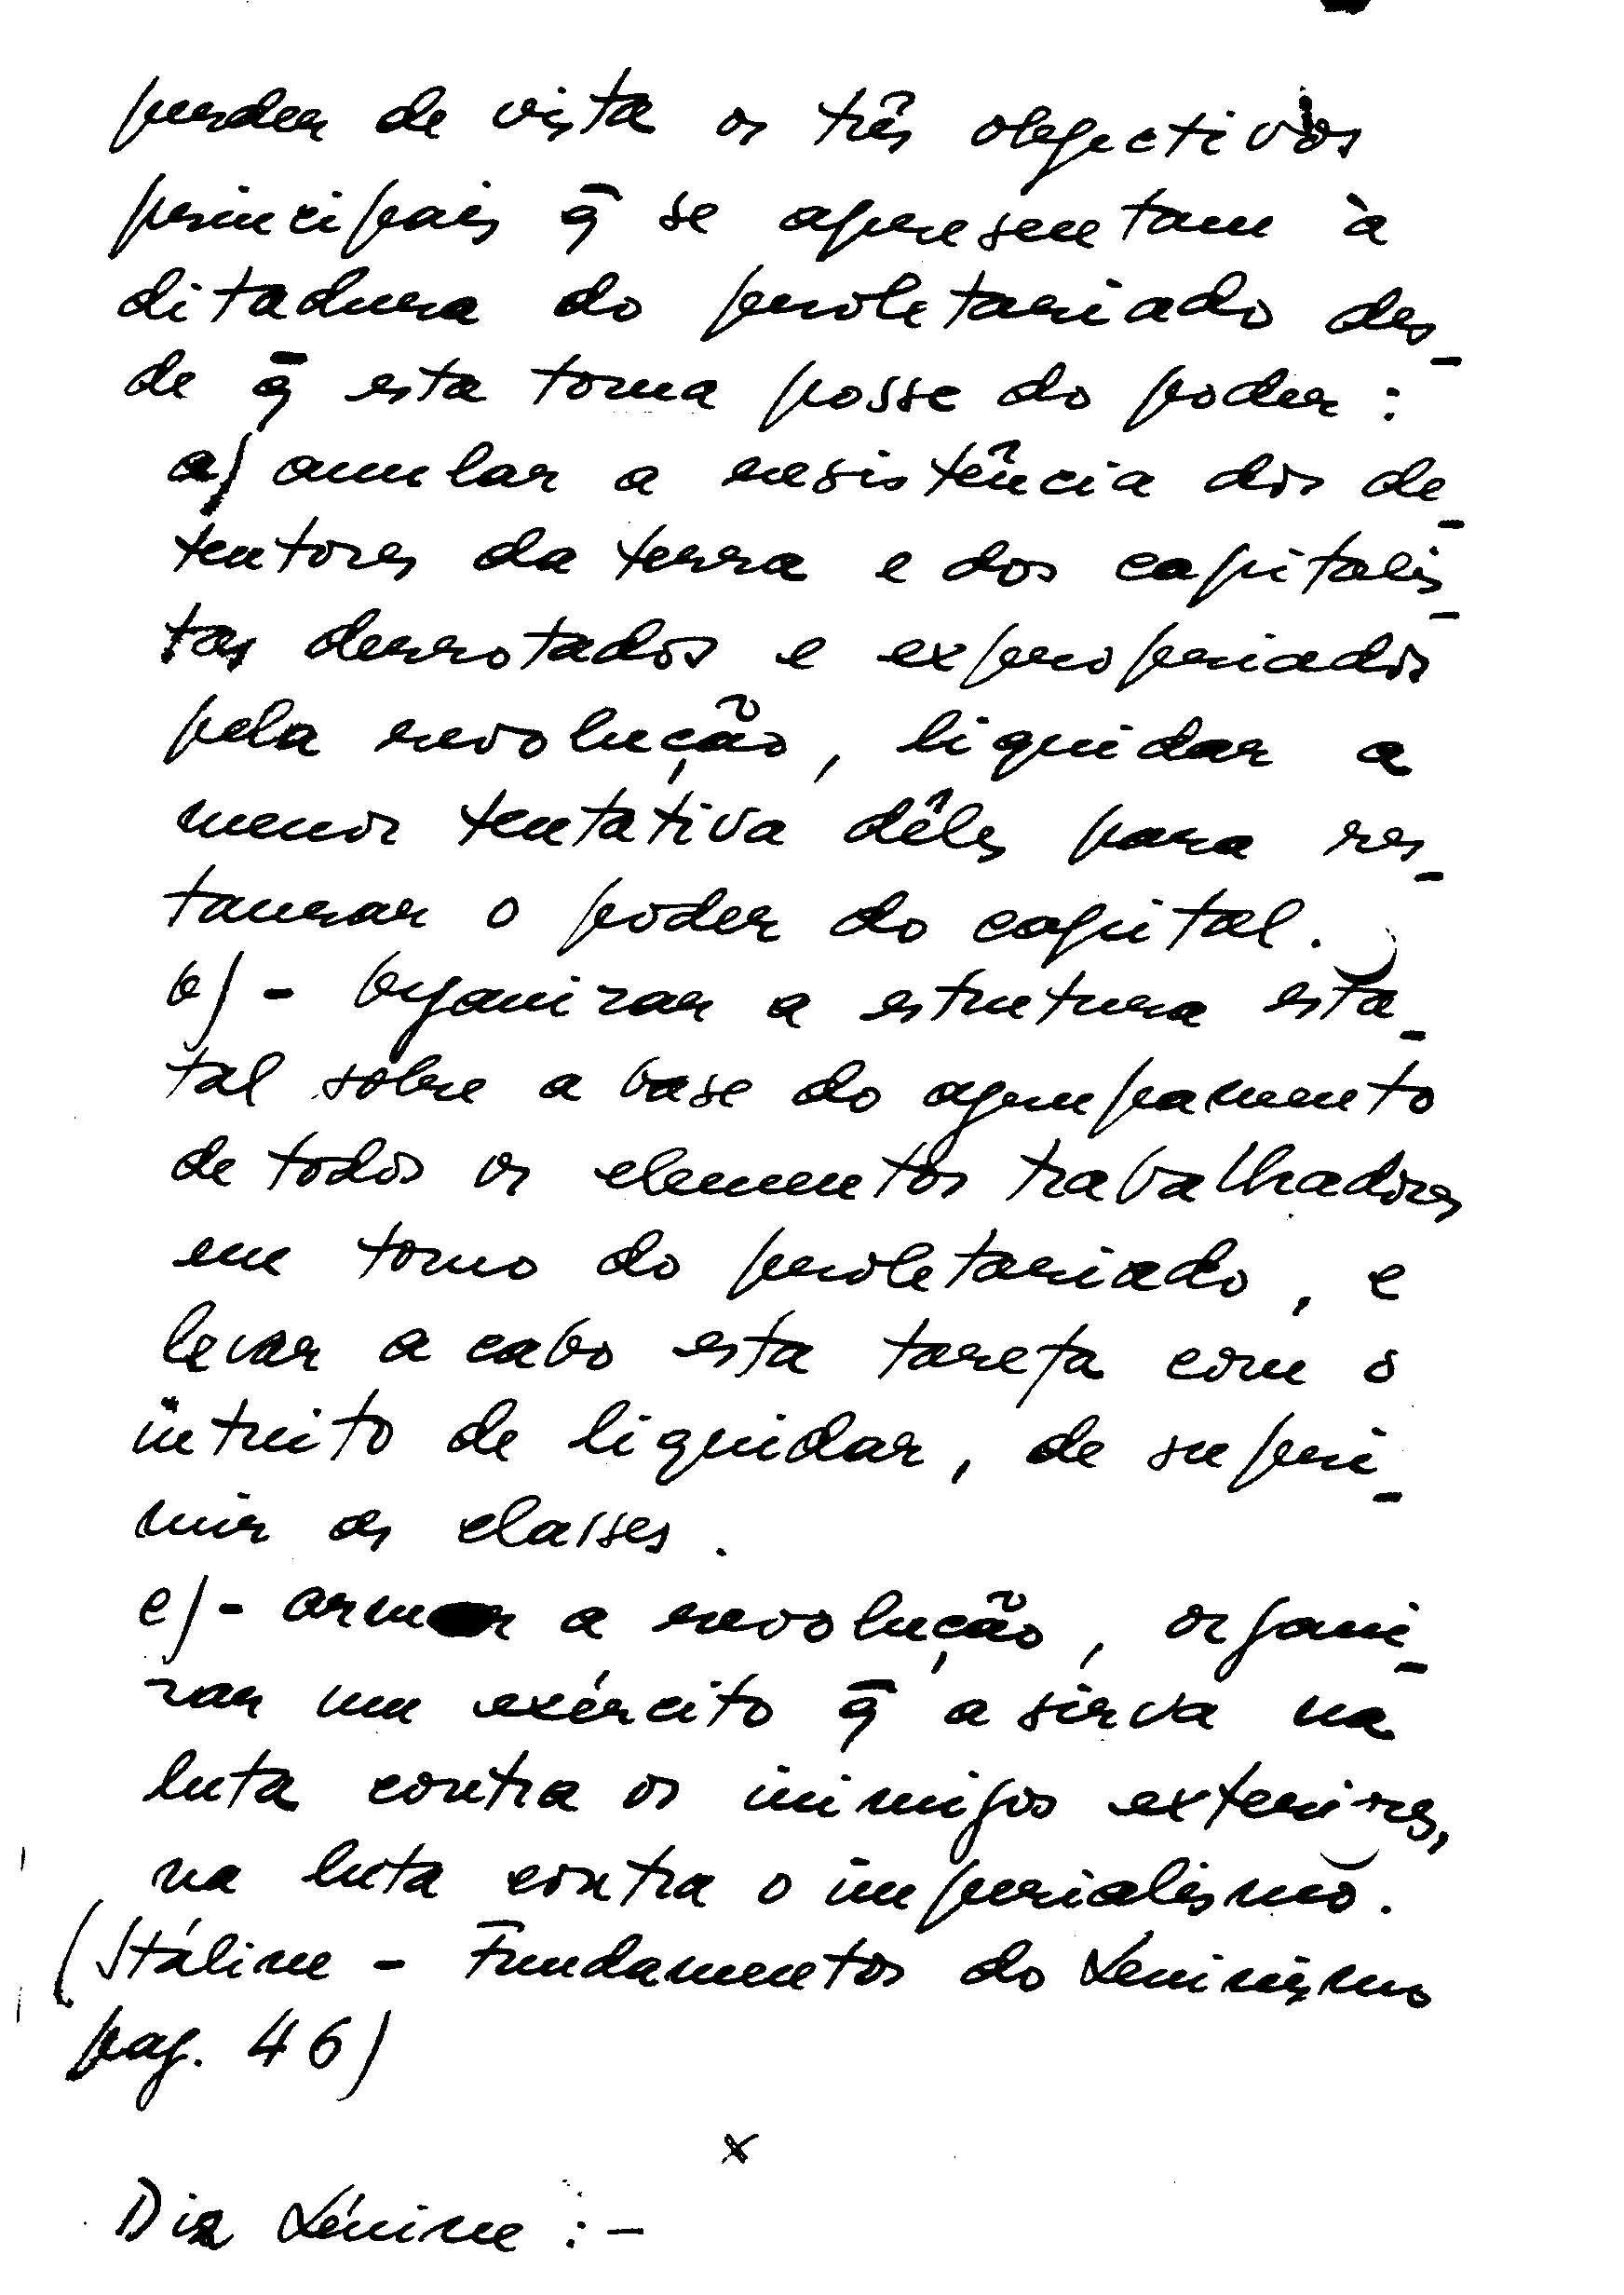 perder de vista os três objectivos
principais q̄ se apresentam à
ditadura do proletariado des-
de q̄ esta toma posse do poder:
a) anular a resistência dos de-
tentores da terra e dos capitalis-
tas derrotados e expropriados
pela revolução, liquidar a
menor tentativa dêles para res-
taurar o poder do capital.
b) - Organizar a estrutura esta-
tal sôbre a base do agrupamento
de todos os elementos trabalhadores
em torno do proletariado, e
levar a cabo esta tarefa com o
intuito de liquidar, de supri-
mir as classes.
c) - armar a revolução, organi-
zar um exército q̄ a sirva na
luta contra os inimigos exteriores,
na luta contra o imperialismo.
(Stáline - Fundamentos do Leninismo
pag. 46)
x
Diz Lénine :-